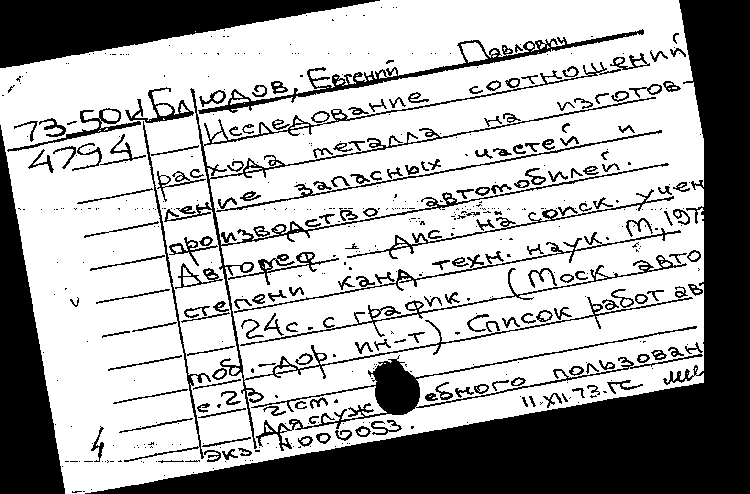 73-50к Блюдов, Евгений Павлович
4794 Исследование соотношений
расхода металла на изготов-
ление запасных частей и
производство автомобилей.
Автореф. дис. на соиск. учен
степени канд. техн. наук. М., 1973
24с. с график. (Моск. авто
моб.-дор. ин-т). Список работ авт
с.23. 21см.
Для служебного пользован
4 экз. N.000053. 11.XII.73.гс